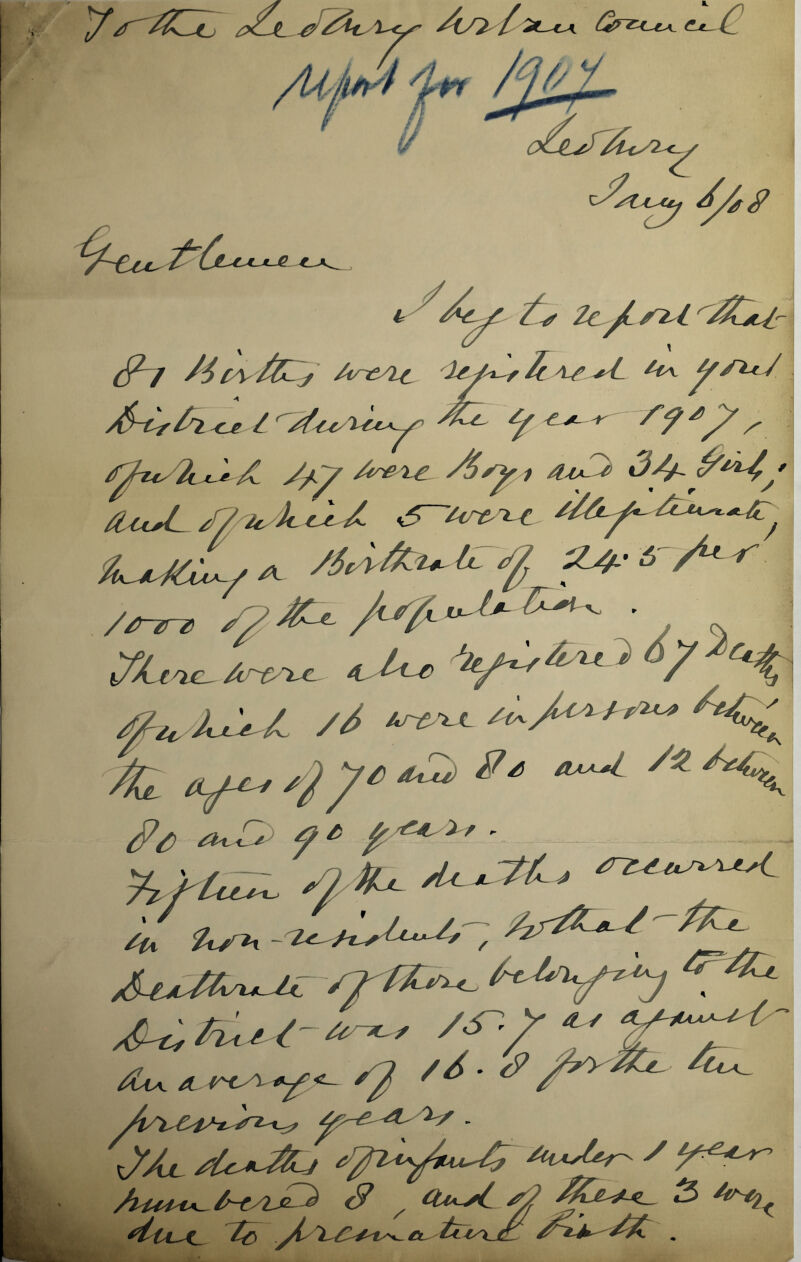 To the Ledbury Urban Council
report for 1907
Ledbury
Jany 6/08
Gentlemen
I beg to report that
81 Births were registered in your
District during the year 1907,
of which 47 were Boys and 34 Girls;
and of which 5 were illegitimate,
making a Birthrate of 24.5 per
1000 of the population.
There were also registered 67 Deaths,
of which 16 were in persons between
the ages of 70 and 80 and 12 between
80 and 90 years.
Fifteen of the deaths occurred
in non-residents, so that the
Deathrate of those belonging to the
District was 15.7 as against
an average of 16.8 for the ten
previous years.
The deaths of infants under 1 year
numbered 8, and of these 3 were
due to premature Birth.